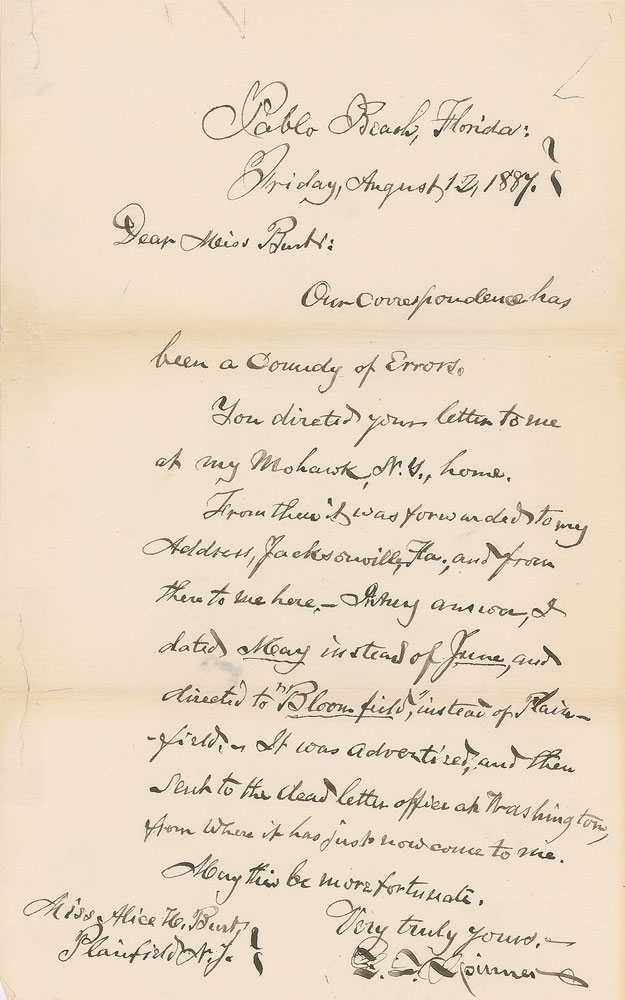 Pablo Beach, Florida:
Friday, August 12, 1887.
Dear Miss Burt:
Our correspondence has
been a Comedy of Errors.
You directed your letter to me
at my Mohawk, N.Y., home.
From then it was forwarded to my
Address, Jacksonville, Fla., and from
there to me here,— In my answer, I
dated May instead of June, and
directed to "Bloomfield," instead of Plain-
-field.— It was advertized, and then
sent to the dead letter office at Washington,
from where it has just now come to me.
May this be more fortunate.
Very truly yours.—
F. E. Spinner
Miss Alice H. Burt,
Plainfield N.J.